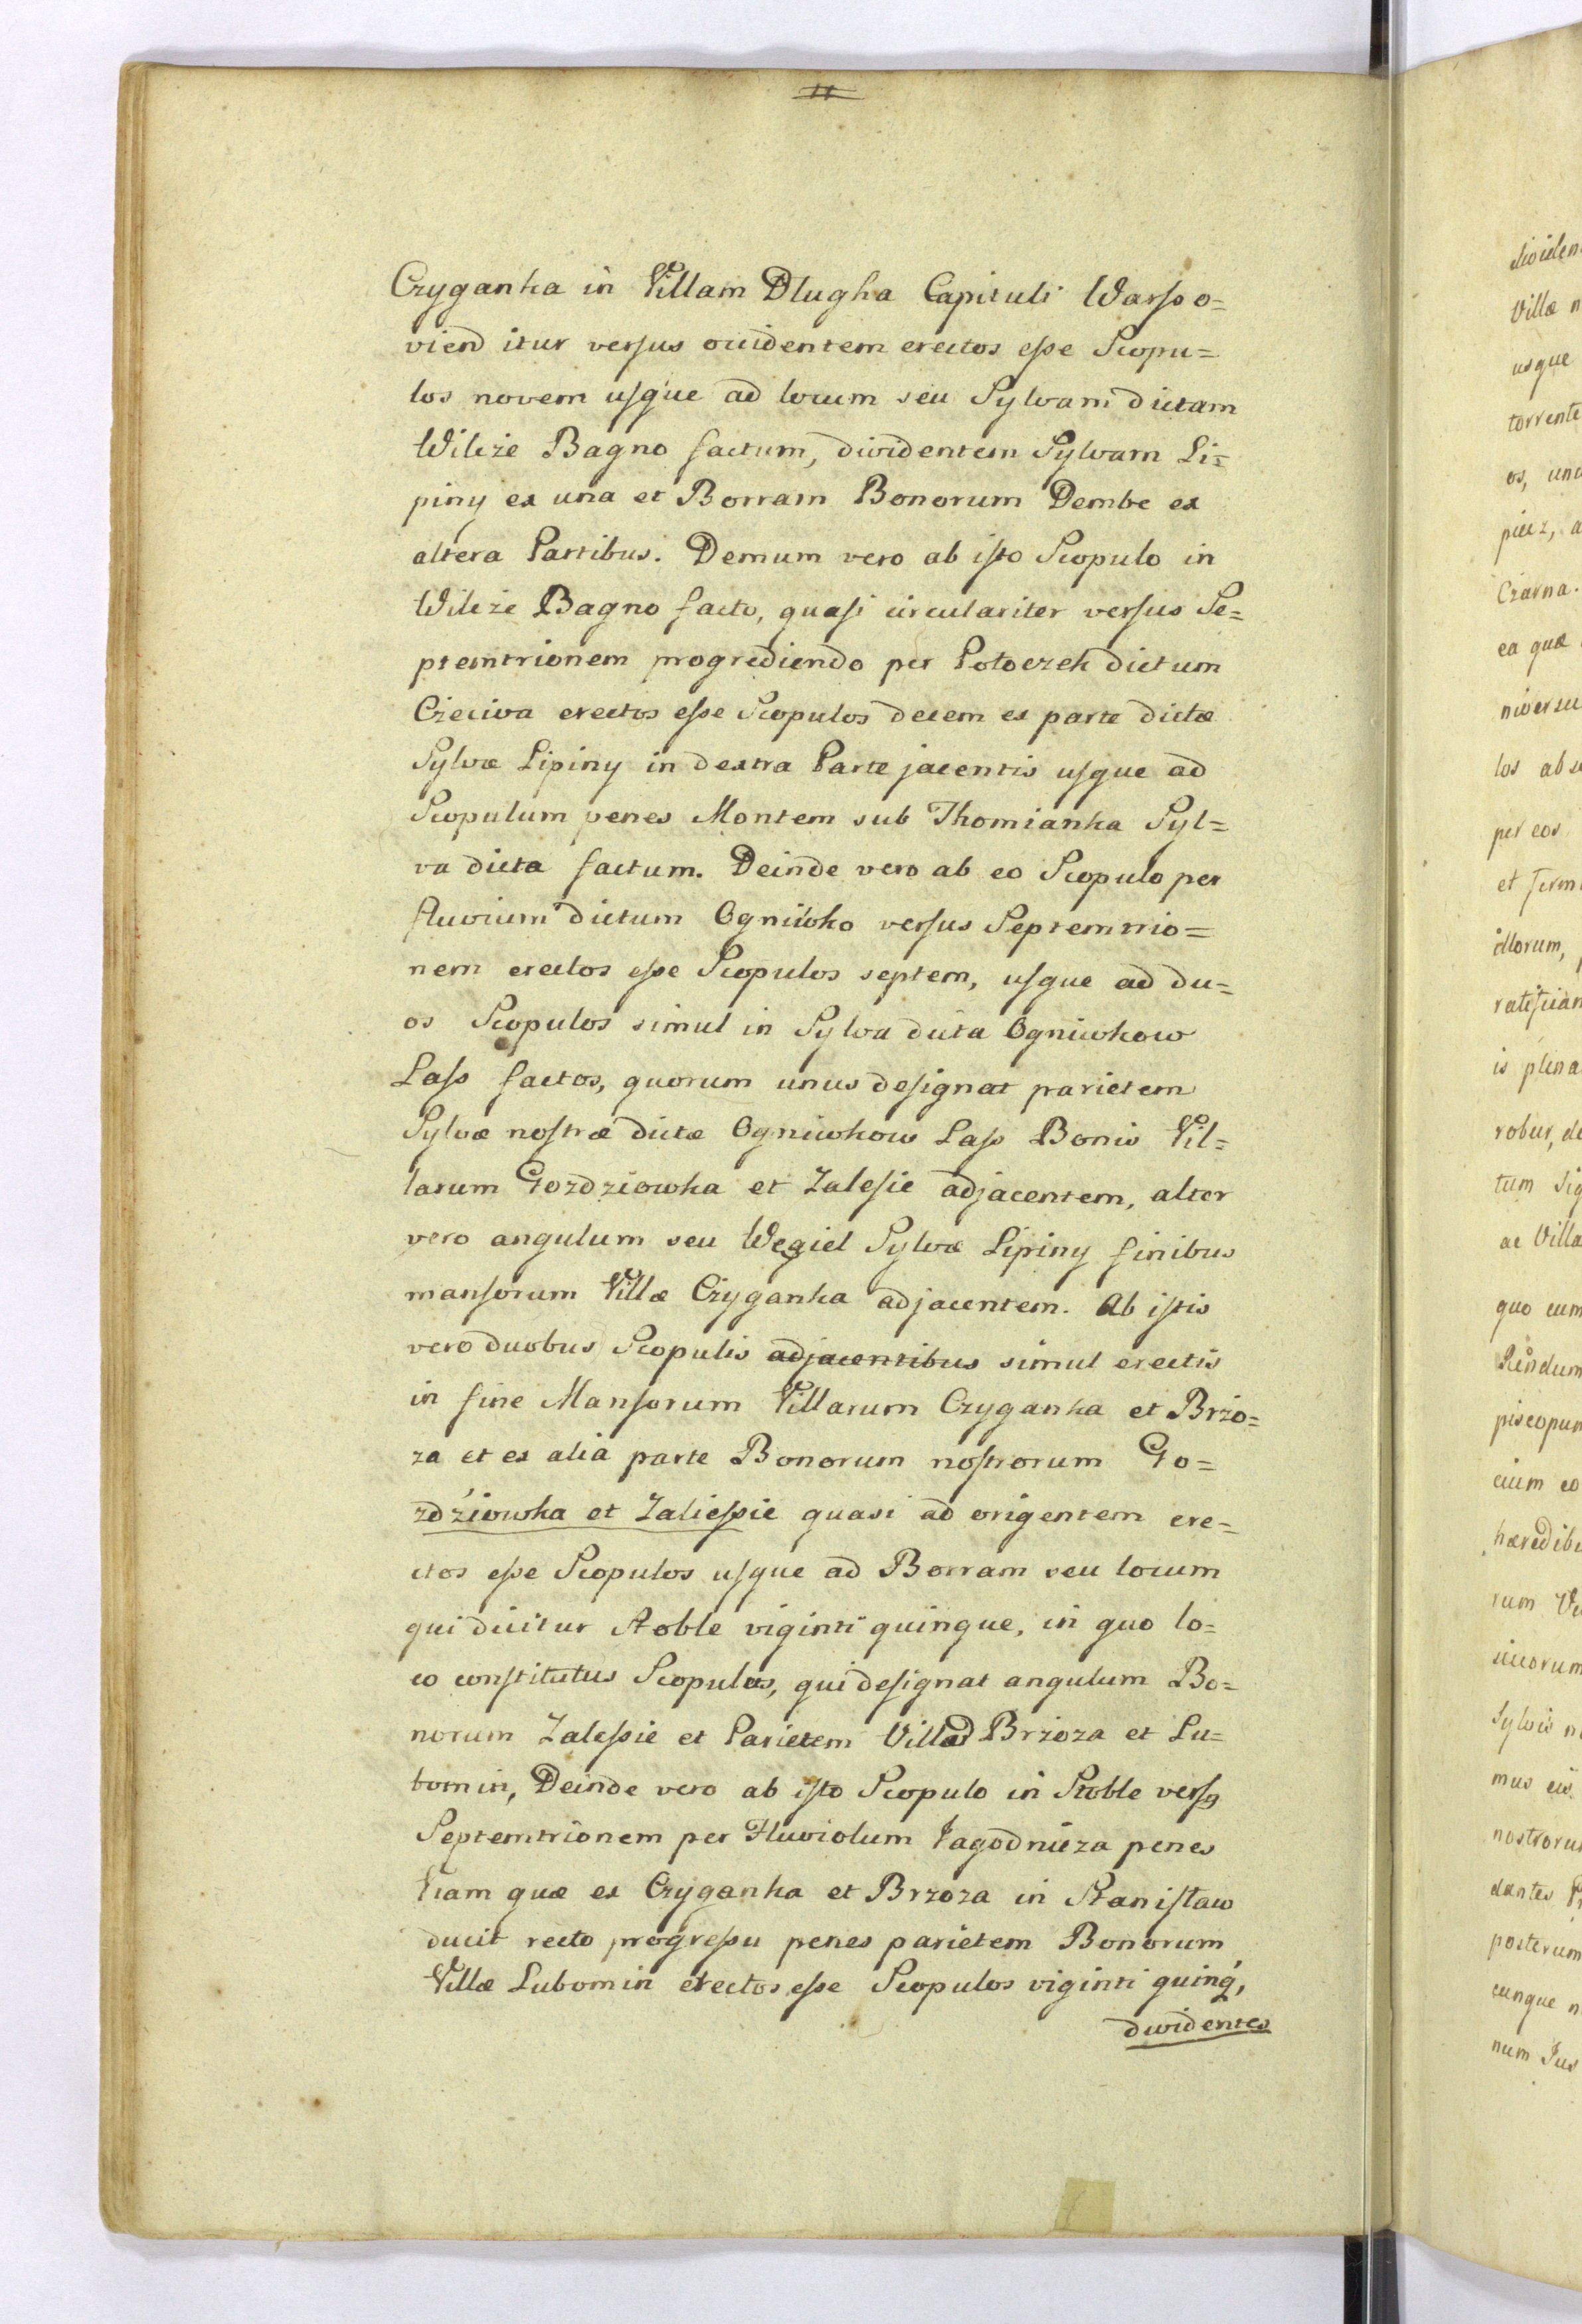 11
Czyganka in Villam Dlugka Capituli Warsso=
viend itur versus occidentem erectos esse Scopu=
los novem usque ad locum seu Sylvam dictam
Wilcze Bagno factum, dividentem Sylvam Li=
piny ex una et Borram Bonorum Dembe ex
altera Partibus. Demum vero ab isto Scopulo in
Wilcze Bagno facto, quasi circulariter versus Se=
ptemtrionem progrediendo per Potoczek dictum
Cieciwa erectos esse Scopulos decem ex parte dictæ
Sylvæ Lipiny in dextra Parte jacentis usque ad
Scopulum penes Montem sub Thomianka Syl=
va dicta factum. Deinde vero ab eo Scopulo per
fluvium dictum Ogniwko versus Septemtrio=
nem erectos esse Scopulos septem, usque ad du=
os Scopulos simul in Sylva dicta Ogniwkow
Lass factos, quorum unus designat parietem
Sylvæ nostræ dictæ Ogniwkow Lass Bonis Vil=
larum Gozdziowka et Zalesie adjacentem, alter
vero angulum seu Wegiel Sylvæ Lipiny finibus
mansorum Villæ Czyganka adjacentem. Ab istis
vero duobus Scopulis adjacentibus simul erectis
in fine Mansorum Villarum Czyganka et Brzo=
za et ex alia parte Bonorum nostrorum Go=
zdziowka et Zaliessie quasi ad origentem ere=
ctos esse Scopulos usque ad Borram seu locum
qui dicitur Stoble viginti quinque, in quo lo=
co constitutus Scopulus, qui designat angulum Bo=
norum Zalessie et Parietem Villæ Brzoza et Lu=
bomin, Deinde vero ab isto Scopulo in Stoble versq
Septemtrionem per Fluviolum Jagodnicza penes
Viam quæ ex Czyganka et Brzoza in Stanislaw
ducit recto progressu penes parietem Bonorum
Villæ Lubomin erectos esse Scopulos viginti quinq,
dividentes
Villæ
usque
os, un
Czarna.
ea quæ
los
per eos
et
illorum,
is plena
robur, de
tum Sig
ac Villa
quo cum
hæredib
rum
mus eis.
nostroru
dantes
posterum
cunque n
num Jus